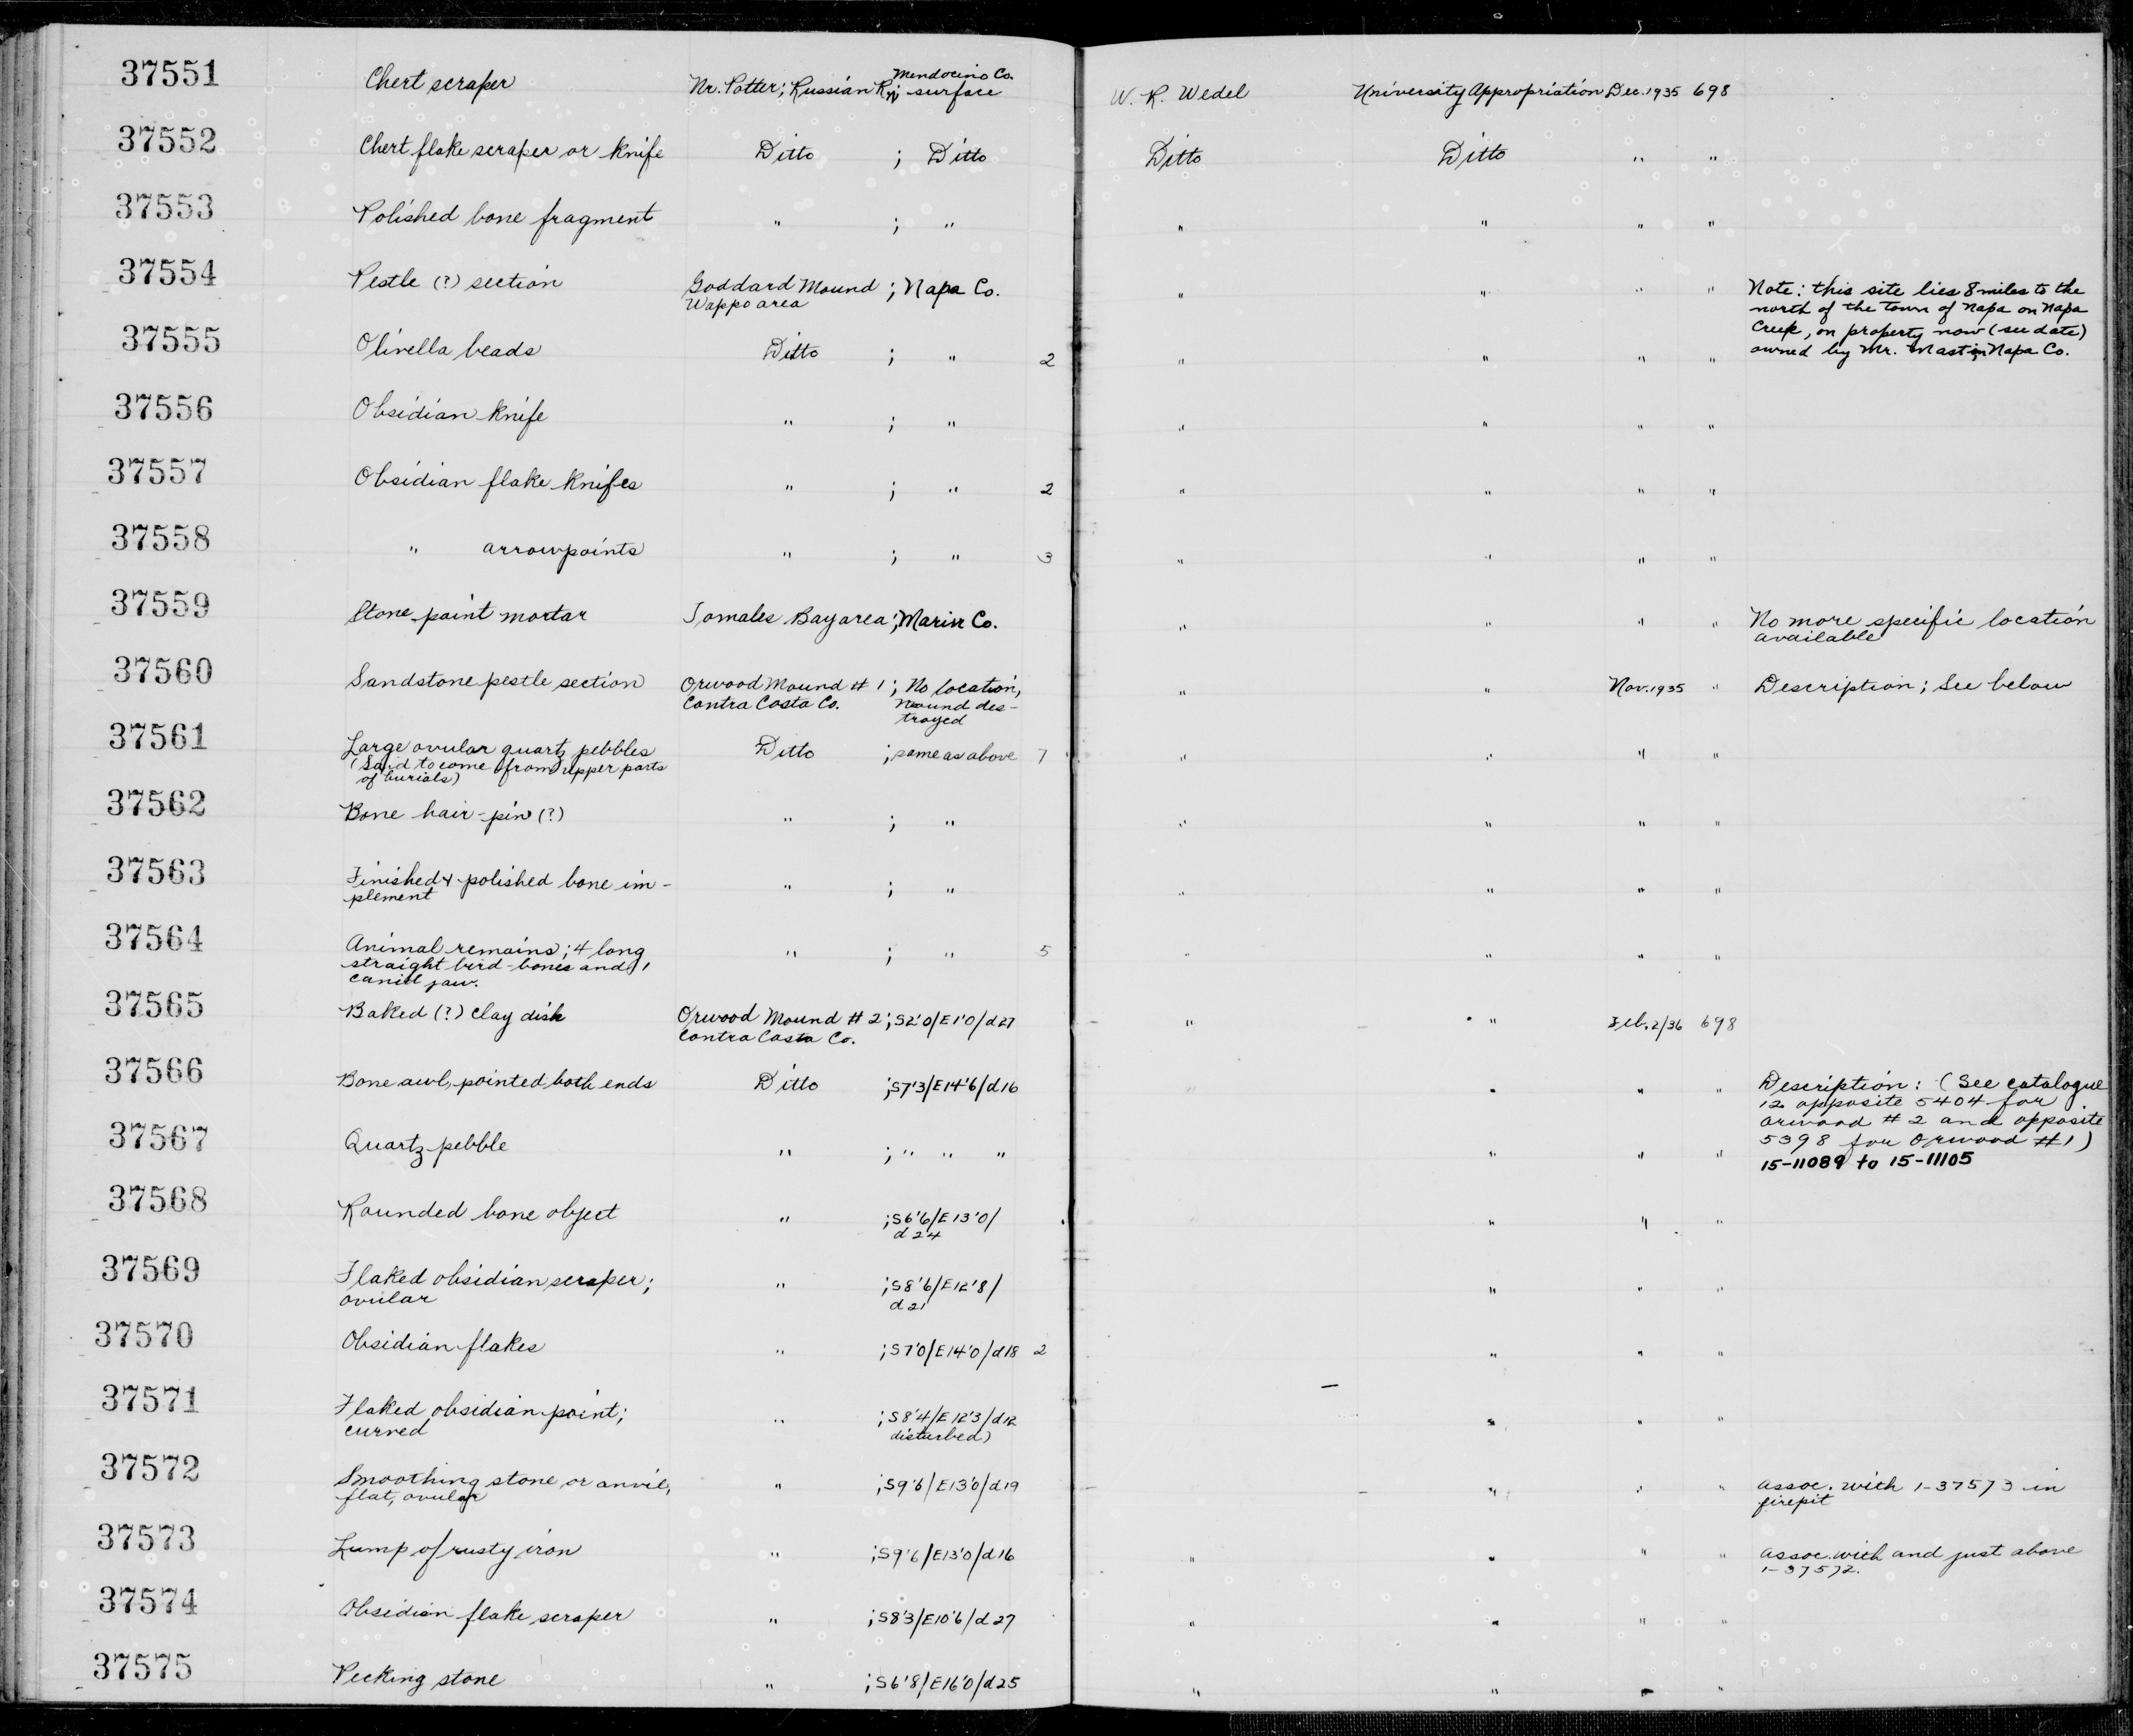 37551 Chert scraper Nr. Potter; Russian R.; surface Mendocino Co. W. R. Wedel University Appropriation Dec. 1935 698
37552 Chert flake scraper or knife Ditto ; Ditto Ditto Ditto " "
37553 Polished bone fragment " ; " " " " "
37554 Pestle (?) section Goddard Mound ; Napa Co. " " " " Note: this site lies 8 miles to the
Wappo area north of the town of Napa on Napa
Creek, on property now (see date)
37555 Olivella beads Ditto ; " 2 " " " " owned by Mr. Mast in Napa Co.
37556 Obsidian knife " ; " " " " "
37557 Obsidian flake knifes " ; " 2 " " " "
37558 " arrowpoints " ; " 3 " " " "
37559 Stone paint mortar Tomales Bay area ; Marin Co. " " " " No more specific location
available
37560 Sandstone pestle section Orwood Mound # 1 ; No location, " " Nov. 1935 " Description; See below
Contra Costa Co. mound des-
troyed
37561 Large ovular quartz pebbles Ditto ; same as above 7 " " " "
(Said to come from upper parts
of burials)
37562 Bone hair-pin (?) " ; " " " " "
37563 Finished & polished bone im- " ; " " " " "
plement
37564 Animal remains; 4 long " ; " 5 " " " "
straight bird-bones and 1
canid jaw.
37565 Baked (?) clay disk Orwood Mound # 2 ; S2'0/E1'0/d27 " " Feb. 2/36 698
Contra Costa Co.
37566 Bone awl, pointed both ends Ditto ; S7'3/E14'6/d16 " " " Description: (See catalogue
12 opposite 5404 for
Orwood # 2 and opposite
37567 Quartz pebble " ; " " " " " " 5398 for Orwood #1)
15-11089 to 15-11105
37568 Rounded bone object " ; S6'6/E13'0/ " " "
d24
37569 Flaked obsidian scraper; " ; S8'6/E12'8/ " " "
ovular d21
37570 Obsidian flakes " ; S7'0/E14'0/d18 2 " " "
37571 Flaked obsidian point; " ; S8'4/E12'3/d12 " " "
curved disturbed)
37572 Smoothing stone or anvil, " ; S9'6/E13'0/d19 " " " assoc. with 1-37573 in
flat, ovular firepit
37573 Lump of rusty iron " ; S9'6/E13'0/d16 " " " " assoc. with and just above
1-37572.
37574 Obsidian flake scraper " ; S8'3/E10'6/d27 " " " "
37575 Pecking stone " ; S6'8/E16'0/d25 " " " "